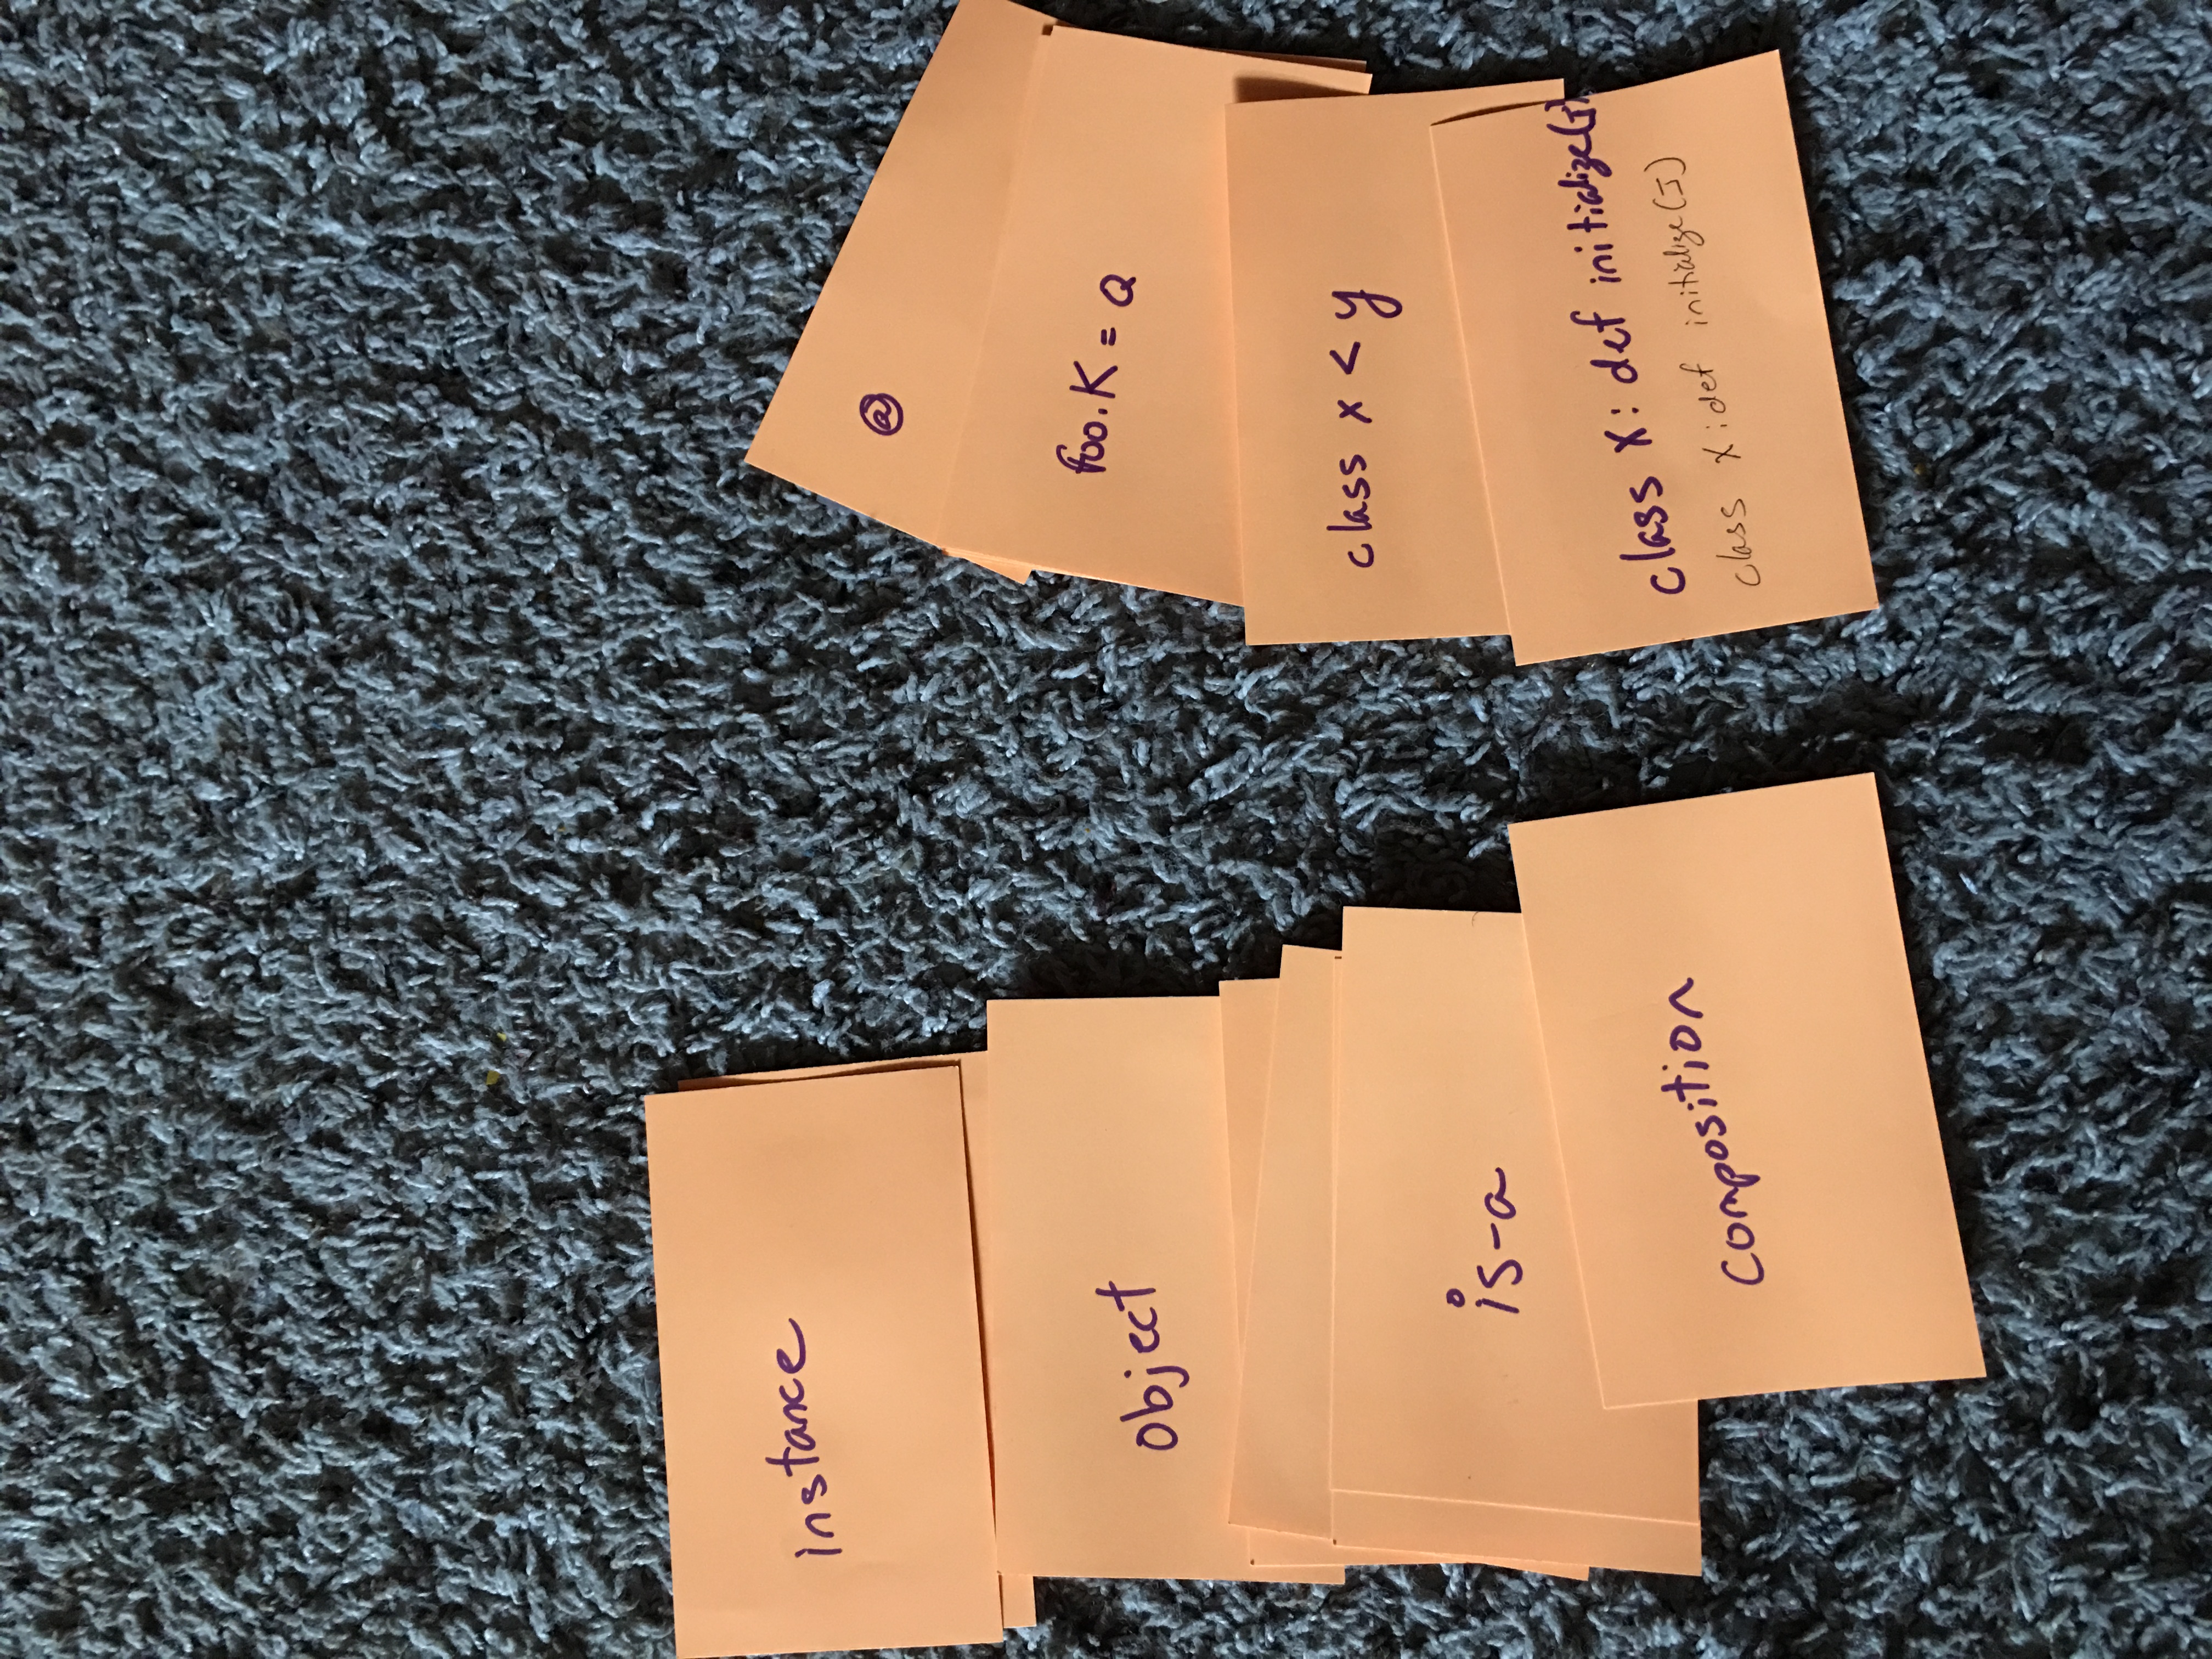 instance
object
is-a
composition
@
foo.K = Q
class x < y
class X: def initialize(J)
class X:def initialize(J)